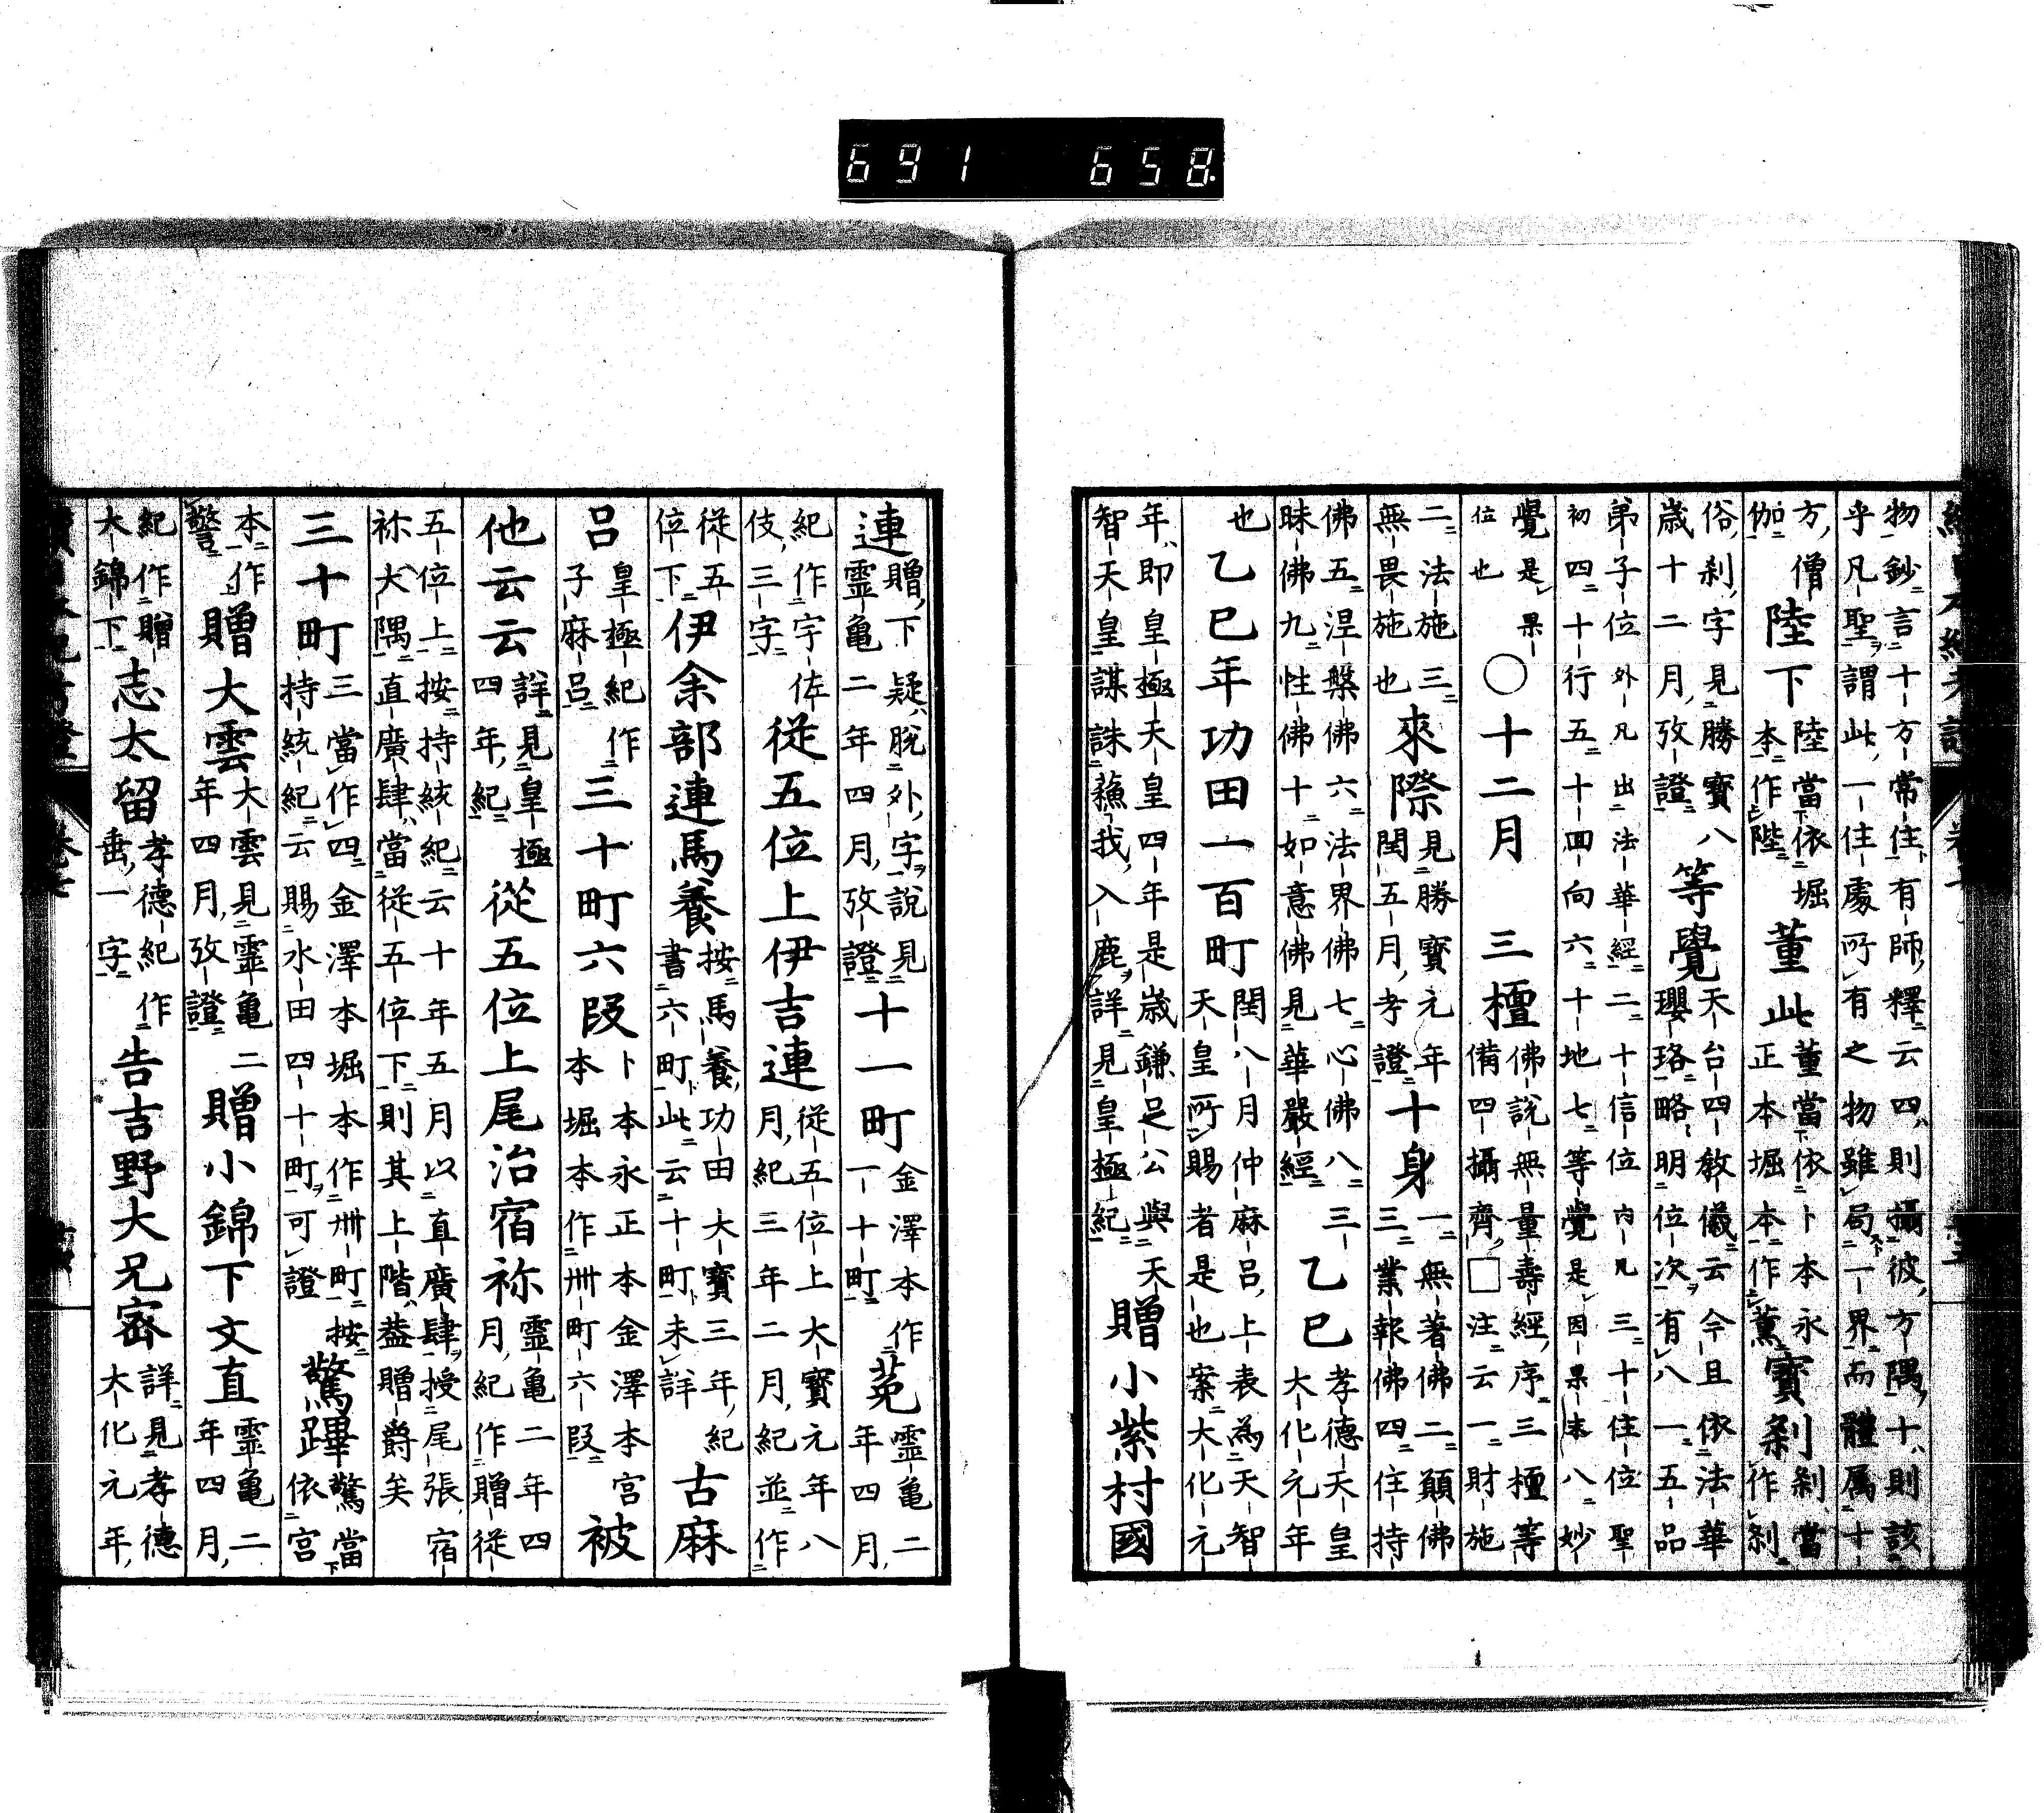 物鈔言十方常住有師釋云四則攝彼方隅十則該
乎凡聖謂此一住處所有之物雖局一界而體属十
方僧伽陸下陸當依堀本作陛董此董當依卜本永正本堀本作薫寳刹刹當作剎
俗刹字見勝寳八歳十二月攷證等覺天台四教儀云今且依法華瓔珞略明位次有八一五品
弟子位外凡出法華經二十信位内凡三十住位聖
初四十行五十回向六十地七等覺是因果末八妙
覺是果位也○十二月三檀佛説無量壽經序三檀等備四攝齊□注云一財施
二法施三無畏施也來際見勝寳元年閏五月考證十身一無著佛二願佛三業報佛四住持
佛五涅槃佛六法界佛七心佛八三昧佛九性佛十如意佛見華嚴經乙巳孝德天皇大化元年
也乙巳年功田一百町閏八月仲麻呂上表為天智天皇所賜者是也案大化元
年即皇極天皇四年是歳鎌足公與天智天皇謀誅蘓我入鹿詳見皇極紀贈小紫村國
連贈下疑脱外字説見靈亀二年四月攷證十一町金澤本作一十町菟靈亀二年四月
紀作宇佐伎三字從五位上伊吉連從五位上大寳元年八月紀三年二月紀並作
從五位下伊余部連馬養按馬養功田大寳三年紀書六町此云十町未詳古麻
呂皇極紀作子麻呂三十町六段卜本永正本金澤本宮本堀本作卅町六段被
他云云詳見皇極四年紀從五位上尾治宿祢靈亀二年四月紀作贈從
五位上按持統紀云十年五月以直廣肆授尾張宿
祢大隅直廣肆當從五位下則其上階葢贈爵矣
三十町三當作四金澤本堀本作卌町按持統紀云賜水田四十町可證驚蹕驚當依宮
本作警贈大雲大雲見靈亀二年四月攷證贈小錦下文直靈亀二年四月
紀作贈大錦下志太留孝德紀作垂一字告吉野大兄密詳見孝德大化元年
691 658